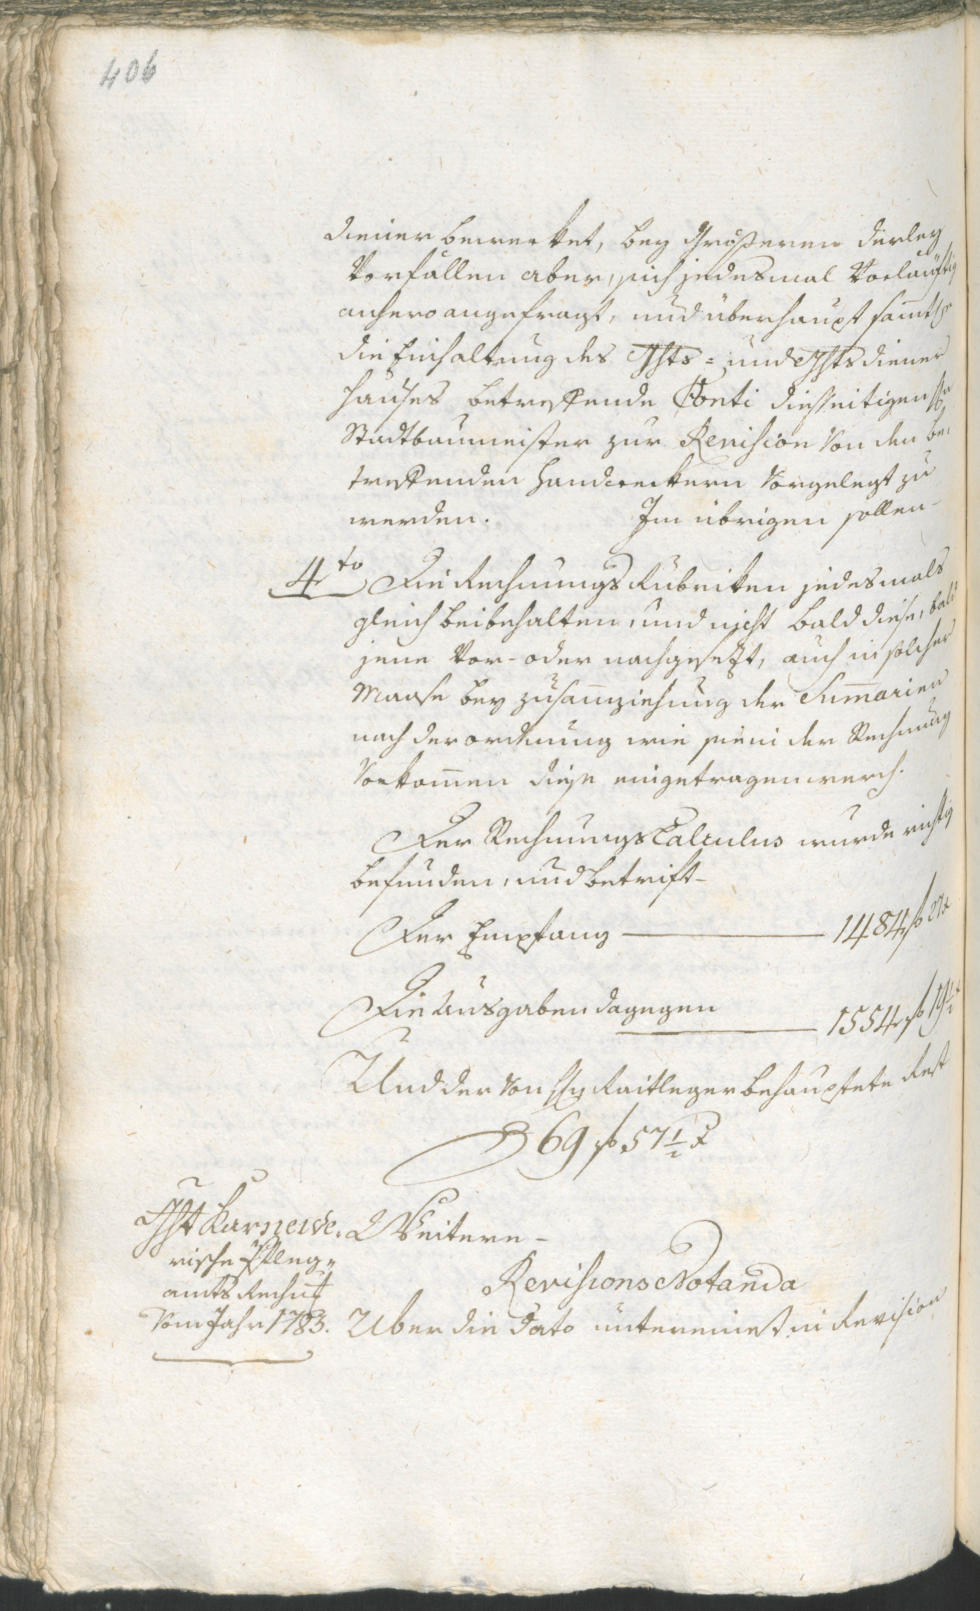 406
diener bemerket, bey Größeren derley
Vorfällen aber, sich jedesmal Vorläuffig
anhero angefragt, und überhaupt samtl.
die Einhaltung des Ghts= und Ghtsdiener
Hauses betreffende Conti diesseitigen H.
Stadtbaumeister zur Revision Von den be-
treffenden Handwerkern Vorgelegt zu
werden. Im übrigen sollen
4to Die Rechnungs Rubriken jedesmals
gleich beibehalten, und nicht bald diese, bald
jene Vor- oder nachgesetzt, auch in solcher
Maase bey zusam̅ziehung der Sum̅arien
nach der ordnung wie sie in der Rechnung
Vorkom̅en diese eingetragen werd.
Der Rechnungs Calculus wurde richtig
befunden, und betrift
Der Empfang — 1484 f 21 x
Die Ausgaben dagegen — 1554 f 19½ x
Und der Von H. Raitleger behauptete Rest
69 f 57½ x
Weitere
Revisions Notanda
Ght Karneid-
rische Pfleg-
amts Rechng
Vom Jahr 1783.
Uber die Dato untereinst in Revision